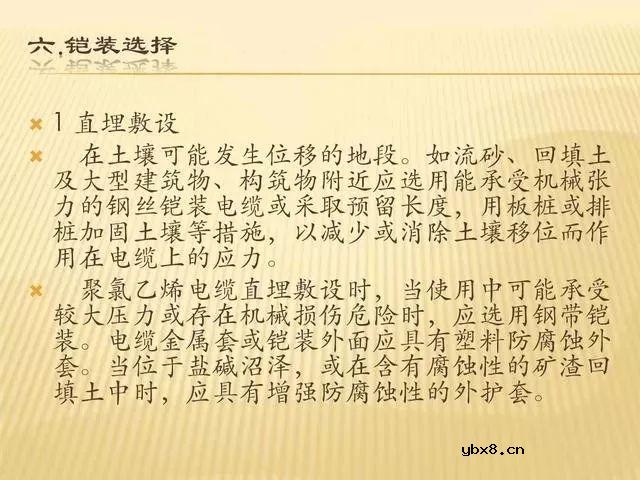 六,铠装选择
1 直埋敷设
在土壤可能发生位移的地段。如流砂、回填土
及大型建筑物、构筑物附近应选用能承受机械张
力的钢丝铠装电缆或采取预留长度，用板桩或排
桩加固土壤等措施，以减少或消除土壤移位而作
用在电缆上的应力。
聚氯乙烯电缆直埋敷设时，当使用中可能承受
较大压力或存在机械损伤危险时，应选用钢带铠
装。电缆金属套或铠装外面应具有塑料防腐蚀外
套。当位于盐碱沼泽，或在含有腐蚀性的矿渣回
填土中时，应具有增强防腐蚀性的外护套。
ybx8.cn